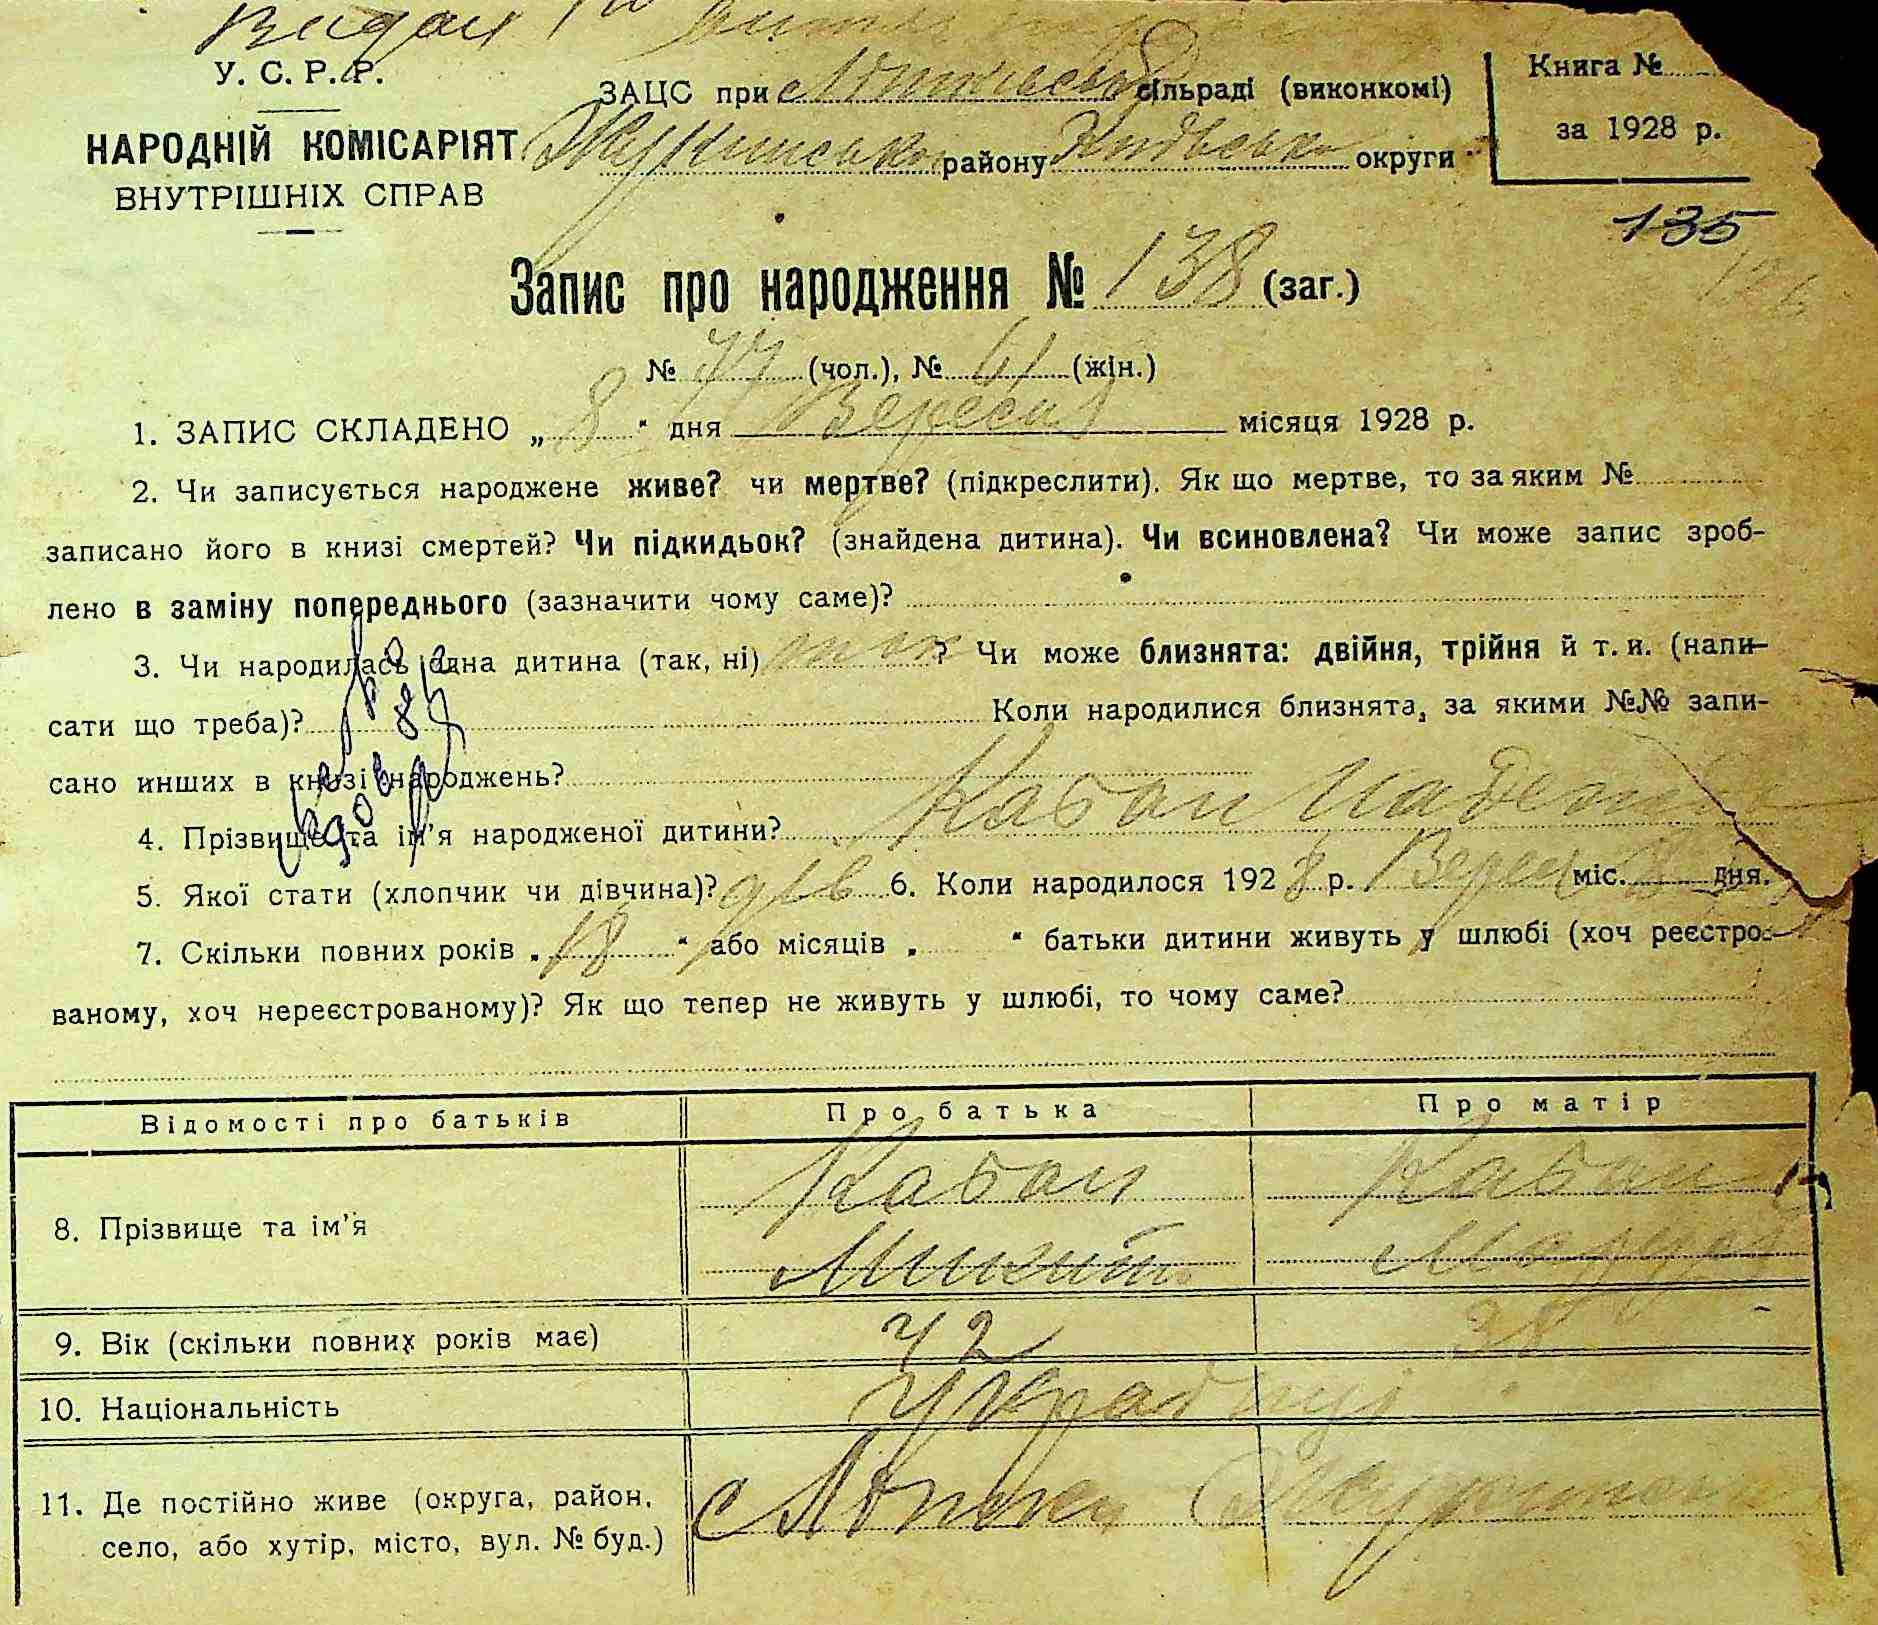 Видан
У. С. Р. Р.
НАРОДНІЙ КОМІСАРІЯТ
ВНУТРІШНІХ СПРАВ
ЗАЦС при сільраді (виконкомі)
району округи
Книга №
за 1928 р.
135
Запис про народження № 138 (заг.)
№ 77 (чол.), № 61 (жін.)
1. ЗАПИС СКЛАДЕНО „ 8 “ дня Вересня місяця 1928 р.
2. Чи записується народжене живе? чи мертве? (підкреслити). Як що мертве, то за яким №
записано його в книзі смертей? Чи підкидьок? (знайдена дитина). Чи всиновлена? Чи може запис зроб-
лено в заміну попереднього (зазначити чому саме)?
3. Чи народилась одна дитина (так, ні) так ? Чи може близнята: двійня, трійня й т. и. (напи-
сати що треба)? Коли народилися близнята, за якими №№ запи-
сано инших в книзі народжень?
4. Прізвище та ім’я народженої дитини? Кабан
5. Якої стати (хлопчик чи дівчина)? дів 6. Коли народилося 1928 р. Верес міс. дня.
7. Скільки повних років „ 18 “ або місяців „ “ батьки дитини живуть у шлюбі (хоч реєстро-
ваному, хоч нереєстрованому)? Як що тепер не живуть у шлюбі, то чому саме?
Відомості про батьків Про батька Про матір
8. Прізвище та ім’я Кабан Кабан
Микита
9. Вік (скільки повних років має) 42 38
10. Національність Українці
11. Де постійно живе (округа, район,
село, або хутір, місто, вул. № буд.) с